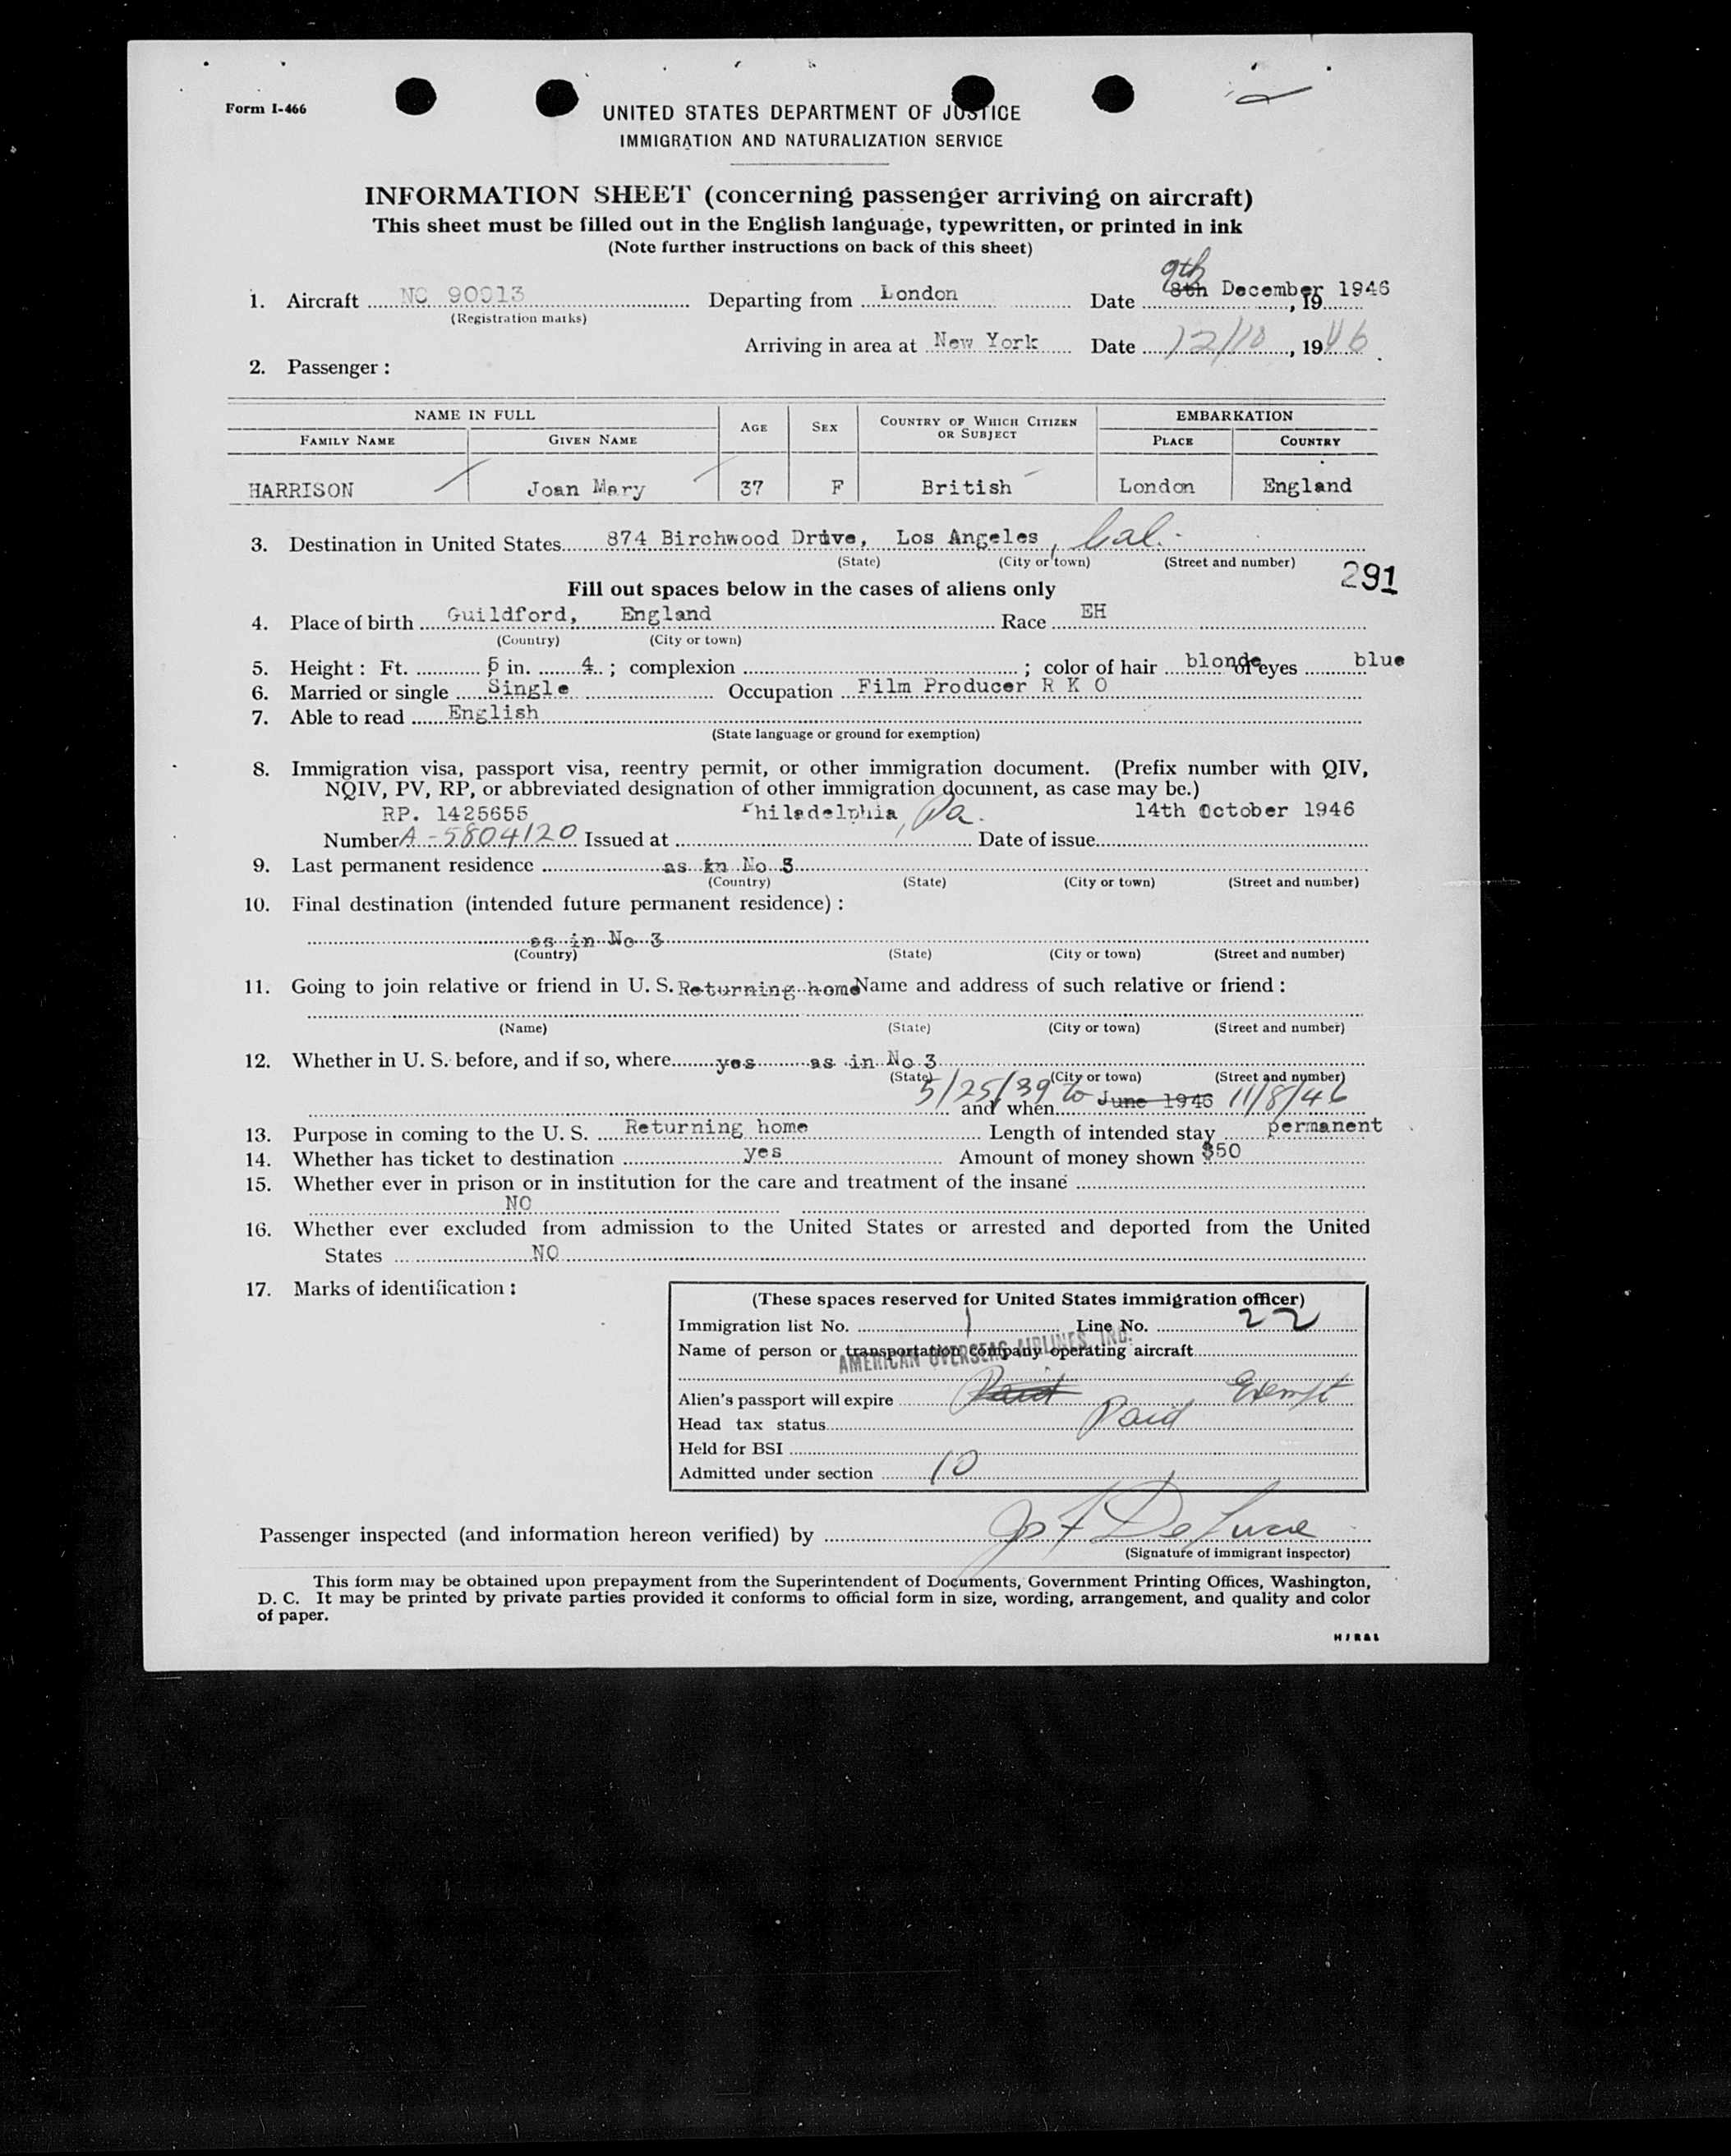 Form I-466
UNITED STATES DEPARTMENT OF JUSTICE
IMMIGRATION AND NATURALIZATION SERVICE
INFORMATION SHEET (concerning passenger arriving on aircraft)
This sheet must be filled out in the English language, typewritten, or printed in ink
(Note further instructions on back of this sheet)
9th
1. Aircraft NC 90913 Departing from London Date 8th December, 19 1946
(Registration marks)
Arriving in area at New York Date 12/10, 1946
2. Passenger:
NAME IN FULL AGE SEX COUNTRY OF WHICH CITIZEN OR SUBJECT EMBARKATION
FAMILY NAME GIVEN NAME PLACE COUNTRY
HARRISON Joan Mary 37 F British London England
3. Destination in United States 874 Birchwood Drive, Los Angeles, Cal.
(State) (City or town) (Street and number)
291
Fill out spaces below in the cases of aliens only
4. Place of birth Guildford, England Race EH
(Country) (City or town)
5. Height: Ft. 5 in. 4; complexion ; color of hair blonde of eyes blue
6. Married or single Single Occupation Film Producer R K O
7. Able to read English
(State language or ground for exemption)
8. Immigration visa, passport visa, reentry permit, or other immigration document. (Prefix number with QIV,
NQIV, PV, RP, or abbreviated designation of other immigration document, as case may be.)
RP. 1425655 Philadelphia, Pa. 14th October 1946
Number A-5804120 Issued at Date of issue
9. Last permanent residence as in No 3
(Country) (State) (City or town) (Street and number)
10. Final destination (intended future permanent residence):
as in No 3
(Country) (State) (City or town) (Street and number)
11. Going to join relative or friend in U. S. Returning home Name and address of such relative or friend:
(Name) (State) (City or town) (Street and number)
12. Whether in U. S. before, and if so, where yes as in No 3
(State) (City or town) (Street and number)
5/25/39 to June 1946 11/8/46
and when
13. Purpose in coming to the U. S. Returning home Length of intended stay permanent
14. Whether has ticket to destination yes Amount of money shown $50
15. Whether ever in prison or in institution for the care and treatment of the insane
NO
16. Whether ever excluded from admission to the United States or arrested and deported from the United
States NO
17. Marks of identification:
(These spaces reserved for United States immigration officer)
Immigration list No. 1 Line No. 22
Name of person or transportation company operating aircraft
AMERICAN OVERSEAS AIRLINES, INC.
Alien's passport will expire Paid Exempt
Head tax status Paid
Held for BSI
Admitted under section 10
Passenger inspected (and information hereon verified) by
(Signature of immigrant inspector)
This form may be obtained upon prepayment from the Superintendent of Documents, Government Printing Offices, Washington,
D. C. It may be printed by private parties provided it conforms to official form in size, wording, arrangement, and quality and color
of paper.